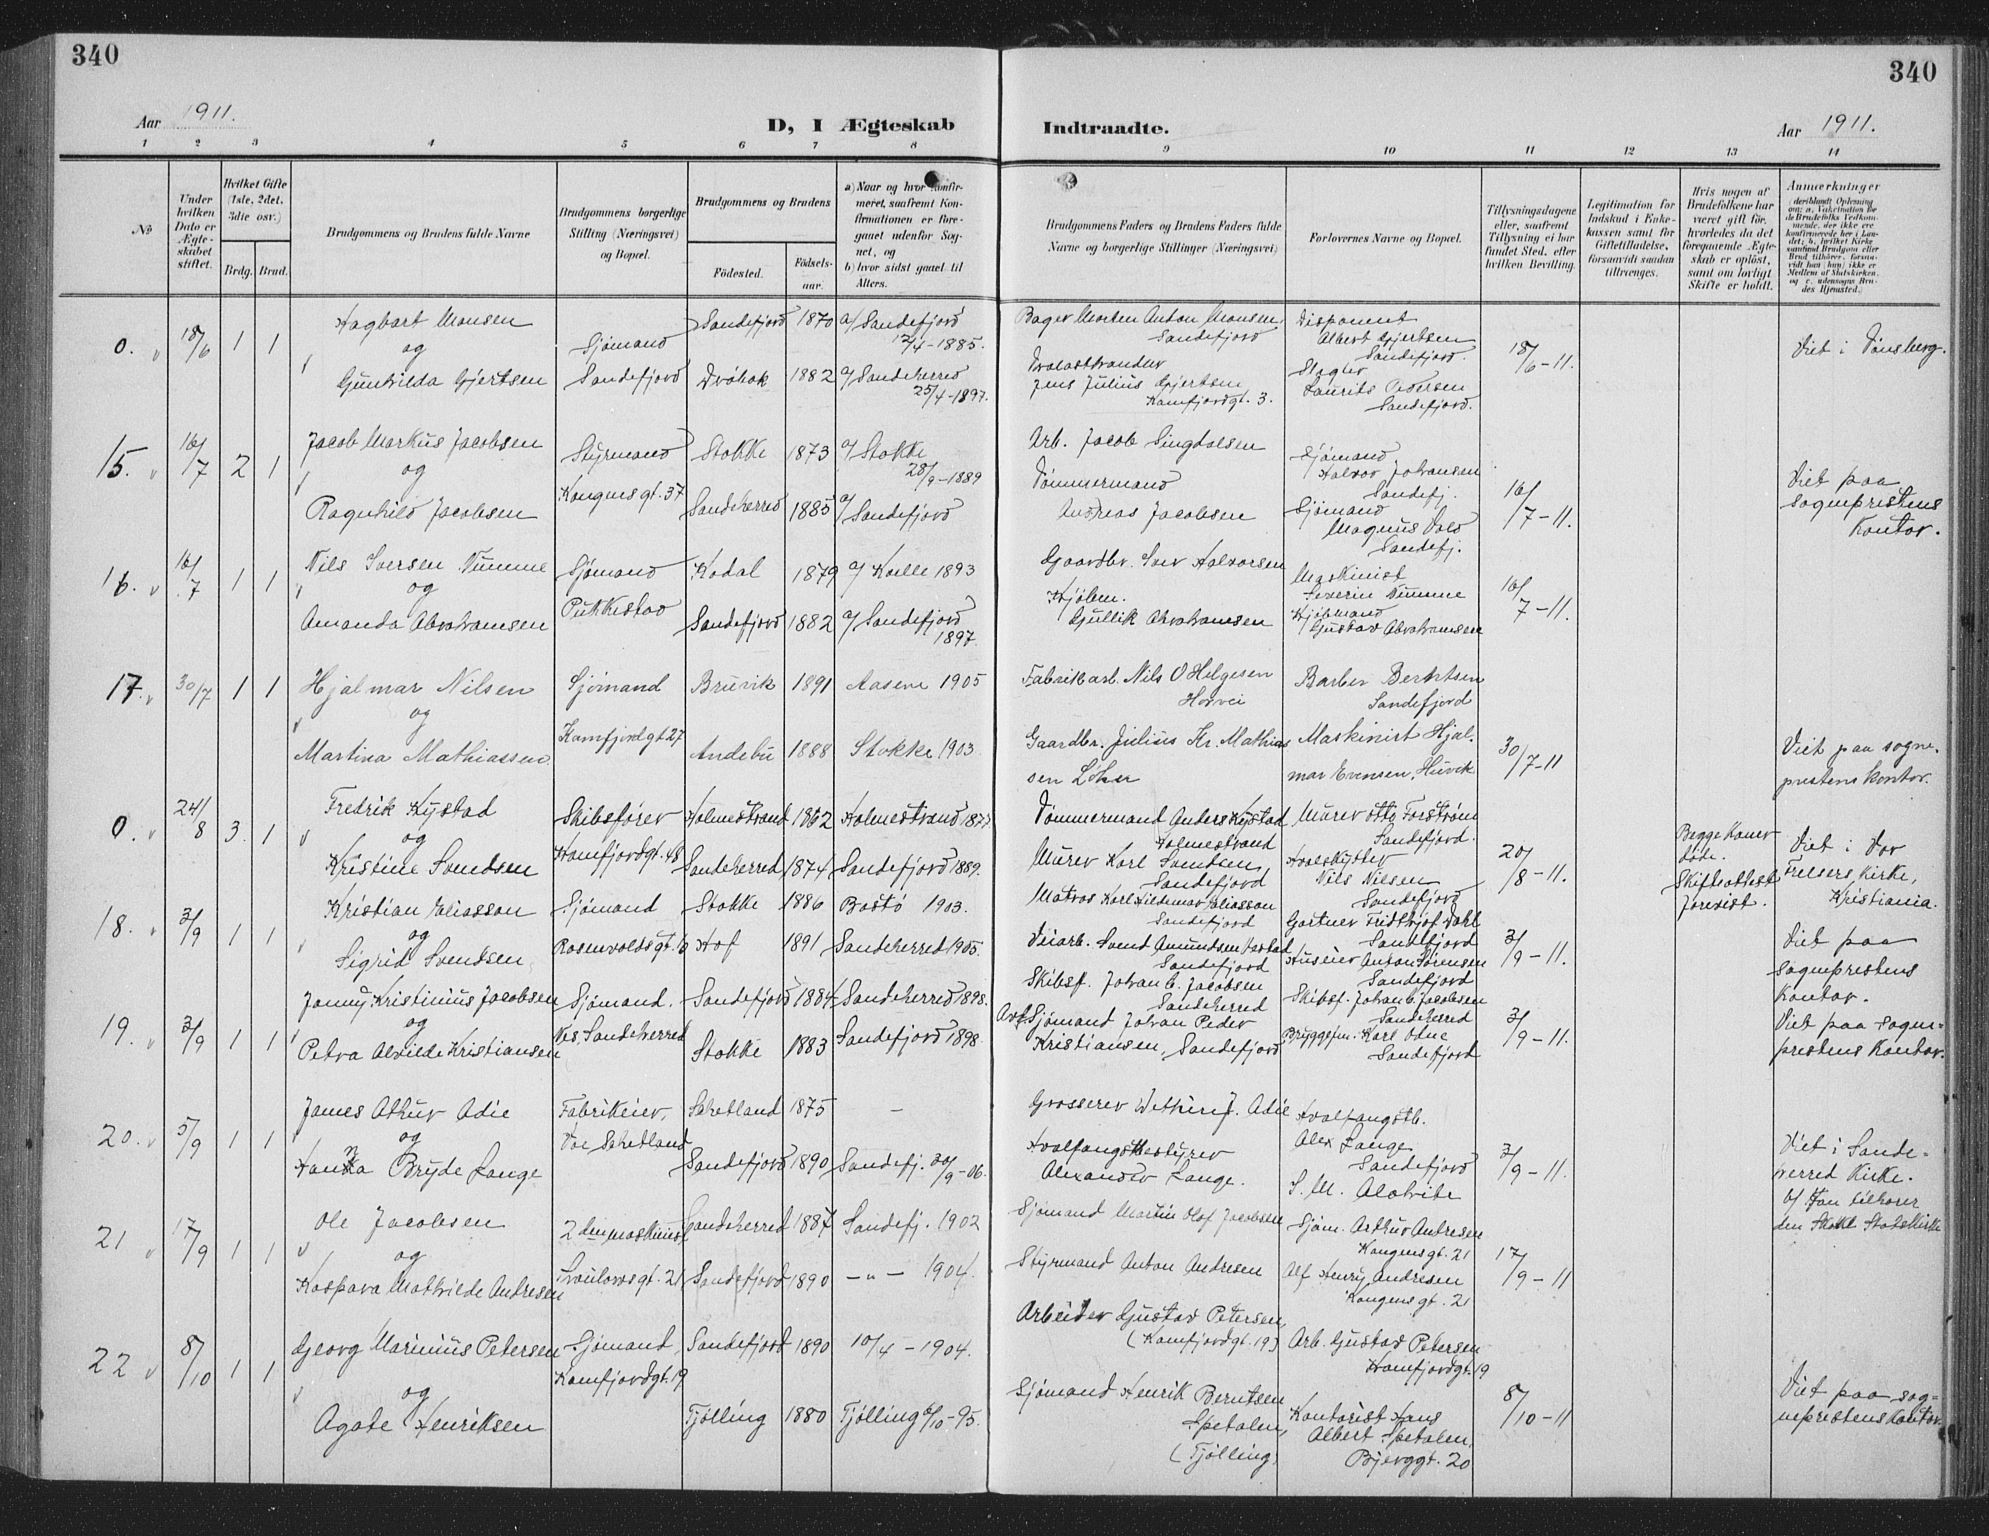 340
340
Aar 1911.
D, I Ægteskab
Indtraadte.
Aar 1911.
1 2 3 4 5 6 7 8 9 10 11 12 13 14
No
Under hvilken Dato er Ægteskabet stiftet.
Hvilket Gifte (1ste, 2det, 3die osv.)
Brdg. Brud.
Brudgommens og Brudens fulde Navne
Brudgommens borgerlige Stilling (Næringsvei) og Bopæl.
Brudgommens og Brudens
Födested.
Födsels-aar.
a) Naar og hvor konfirmeret, saafremt Konfirmationen er foregaaet udenfor Sognet, og
b) hvor sidst gaaet til Alters.
Brudgommens Faders og Brudens Faders fulde Navne og borgerlige Stillinger (Næringsvei)
Forlovernes Navne og Bopæl.
Tillysningsdagene eller, saafremt Tillysning ei har fundet Sted, efter hvilken Bevilling.
Legitimation for Indskud i Enkekassen samt for Giftetilladelse, forsaavidt saadan tiltrænges.
Hvis nogen af Brudefolkene har været gift för, hvorledes da det foregaaende Ægteskab er oplöst, samt om lovligt Skifte er holdt.
Anmærkninger
(deriblandt Oplysning om: a, Vakcination for de Brudefolks Vedkommende, der ikke ere konfirmerede her i Landet; b, hvilket Kirkesamfund Brudgom eller Brud tilhører, forsaavidt han (hun) ikke er Medlem af Statskirken, og c, udensogns Brudes Hjemsted.)
0. 18/6 1 1
Hagbart Monsen
og
Gunhilda Gjertsen
Sjömand
Sandefjord
Sandefjord 1870 a/ Sandefjord 12/4-1885.
Dröbak 1882 a/ Sandeherred 25/4-1897.
Bager Morten Anton Monsen
Sandefjord
Jens Julius Gjertsen
Kamfjordgt. 3.
Disponent
Albert Gjertsen
Sandefjord.
Laurits Pedersen
Sandefjord.
18/6-11.
Viet i Tönsberg.
15. 16/7 2 1
Jacob Markus Jacobsen
og
Ragnhild Jacobsen
Styrmand
Kongensgt. 37
Stokke 1873 a/ Stokke 28/9-1889
Sandeherred 1885 a/ Sandefjord
Arb. Jacob Lingdalsen
Tömmermand
Andreas Jacobsen
Sjömand
Halvor Johansen
Sandefj.
Sjömand
Magnus Vold
Sandefj.
16/7-11.
Viet paa
sogneprestens
Kontor.
16. 16/7 1 1
Nils Iversen Numme
og
Amanda Abrahamsen
Sjömand
Pukkestad
Kodal 1879 a/ Kville 1893
Sandefjord 1882 a/ Sandefjord 1897.
Gaardbr. Iver Halvorsen
Hjölem.
Gullik Abrahamsen
Maskinist
Severin Numme
Kjöbmand
Gustav Abrahamsen
16/7-11.
17. 30/7 1 1
Hjalmar Nilsen
og
Martina Mathiassen
Sjömand
Kamfjordgt 27
Bruvik 1891 Aasene 1905
Andebu 1888 Stokke 1903.
Fabrikarb. Nils O Helgesen
Horvei
Gaardbr. Julius Kr. Mathiassen
Barber Berntsen
Sandefjord
Maskinist Hjalmar Evensen, Huvik
30/7-11
Viet paa sogneprestens kontor.
0. 24/8 3. 1
Fredrik Kystad
og
Kristine Svendsen
Skibsförer
Kamfjordgt. 48
Holmestrand 1862 Holmestrand 1877
Sandeherred 1874 Sandefjord 1889.
Tömmermand Anders Kystad
Holmestrand
Murer Karl Svendsen
Sandefjord
Murer Otto Forström
Sandefjord.
Hvalskytter
Nils Nilsen
Sandefjord
20/8-11.
Begge Koner
döde.
Skifteattest
forevist.
Viet i Vor
Frelsers kirke,
Kristiania.
18. 3/9 1 1
Kristian Eliasson
og
Sigrid Svendsen
Sjömand
Rosenvoldsgt. 6
Stokke 1886 Bastö 1903.
Hof 1891 Sandeherred 1905.
Matros Karl Hildemar Eliasson
Sandefjord
Veiarb. Svend Amundsen
Sandefjord
Gartner Fridthjof Dahl
Sandefjord
Huseier Anton Sörensen
Sandefjord
3/9-11.
Viet paa
sogneprestens
Kontor.
19. 3/9 1 1
Janny Kristinius Jacobsen
og
Petra Alvilde Kristiansen
Sjömand.
Nes, Sandeherred
Sandefjord 1884 Sandeherred 1898.
Stokke 1883 Sandefjord 1898
Skibsf. Johan C. Jacobsen
Sandeherred
Avd. Sjömand Johan Peder
Kristiansen, Sandefjord
Skibsf. Johan C. Jacobsen
Sandeherred
Karl Odne
Sandefjord
3/9-11.
Viet paa sogneprestens Kontor.
20. 5/9 1 1
James Athur Adie
og
Hanna Bryde Lange
Fabrikeier,
Voe Schetland
Schetland 1875 -
Sandefjord 1890 Sandefj. 30/9-06.
Grosserer J. Adie
Hvalfangstbestyrer
Alexander Lange.
Hvalfangstb.
Alex Lange
Sandefjord
3/9-11.
Viet i Sandeherred Kirke.
b/ Han tilhører
den Statskirke
21 17/9 1 1
Ole Jacobsen
og
Kaspara Mathilde Andresen
2den maskinist
Sandeherred 1887 Sandefj. 1902
Sandefjord 1890 - " - 1904.
Sjömand Martin Olof Jacobsen
Styrmand Anton Andresen
Sjöm. Arthur Andresen
Kongensgt. 21
Alf Henry Andresen
Kongensgt. 21
17/9-11
22 8/10 1 1
Georg Marinius Petersen
og
Agate Henriksen
Sjömand,
Kamfjordgt. 19
Sandefjord 1890 10/4-1904.
Tjölling 1880 Tjölling 6/10-95.
Arbeider Gustav Petersen,
(Kamfjordgt. 19)
Sjömand Henrik Berntsen
Spetalen,
(Tjölling)
Arb. Gustav Petersen
Kamfjordgt. 19
Kontorist Hans
Albert Spetalen,
Bjerggt. 20
8/10-11
Viet paa sogneprestens Kontor.